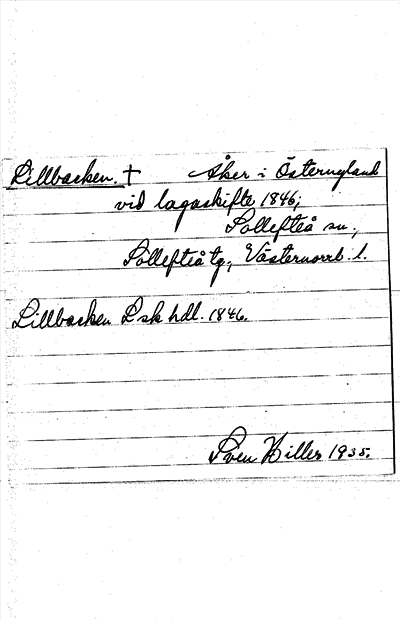 Lillbacken. † Åker i Östernyland
vid lagaskifte 1846;
Sollefteå sn.,
Sollefteå tg., Västernorrl. l.
Lillbacken Lsk hdl. 1846.
Sven Hiller 1935.